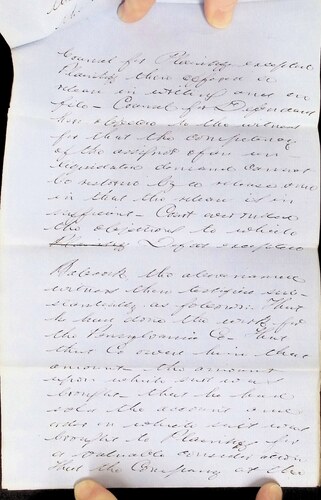 Counsel for Plaintiff excepted
Plaintiff then offered a
release in writing and on
file - Counsel for Defendant
then objected to the witness
for that the competency
of the assignor of an un
liquidated demand cannot
be restored by a release and
in that the release is in
sufficient - Court overruled
the objections to which
Plaintiff Defts excepted
the above named
witness then testified sub-
stantially as follows: That
he had done the work for
the Pennsylvania Co - That
that Co owed him that
amount - the amount
upon which suit was
brought - that he had
sold the account sued
upon in which suit was
brought to Plaintiff for
a valuable consideration
That the Company at the